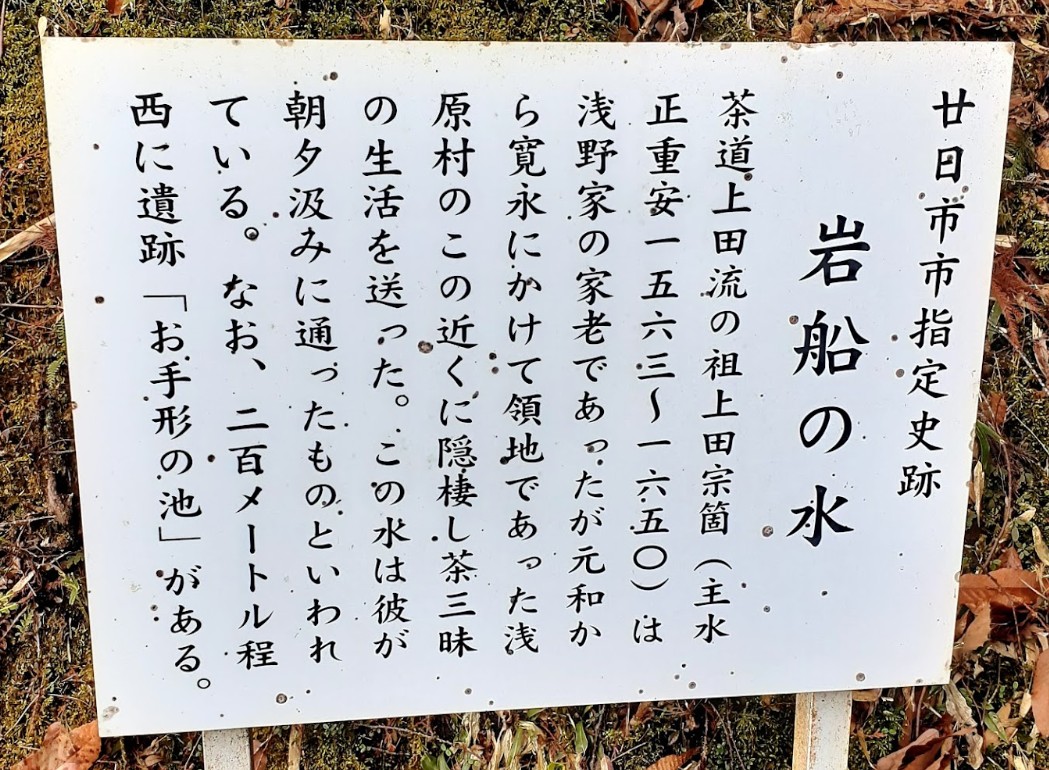 廿日市市指定史跡
岩船の水
茶道上田流の祖上田宗箇（主水
正重安一五六三～一六五〇）は
浅野家の家老であったが元和か
ら寛永にかけて領地であった浅
原村のこの近くに隠棲し茶三昧
の生活を送った。この水は彼が
朝夕汲みに通ったものといわれ
ている。なお、二百メートル程
西に遺跡「お手形の池」がある。